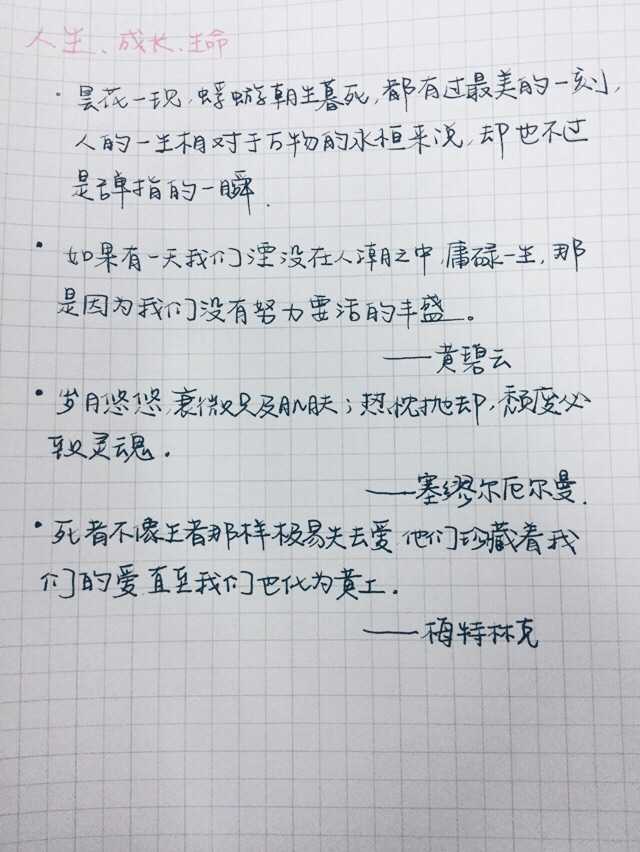 人生、成长、生命
· 昙花一现，蜉蝣朝生暮死，都有过最美的一刻，
人的一生相对于万物的永恒来说，却也不过
是弹指的一瞬.
· 如果有一天我们湮没在人潮之中，庸碌一生，那
是因为我们没有努力要活的丰盛。
——黄碧云
· 岁月悠悠，衰微只及肌肤；热忱抛却，颓废必
致灵魂.
——塞缪尔厄尔曼.
· 死者不像生者那样极易失去爱 他们珍藏着我
们的爱直至我们也化为黄土.
——梅特林克